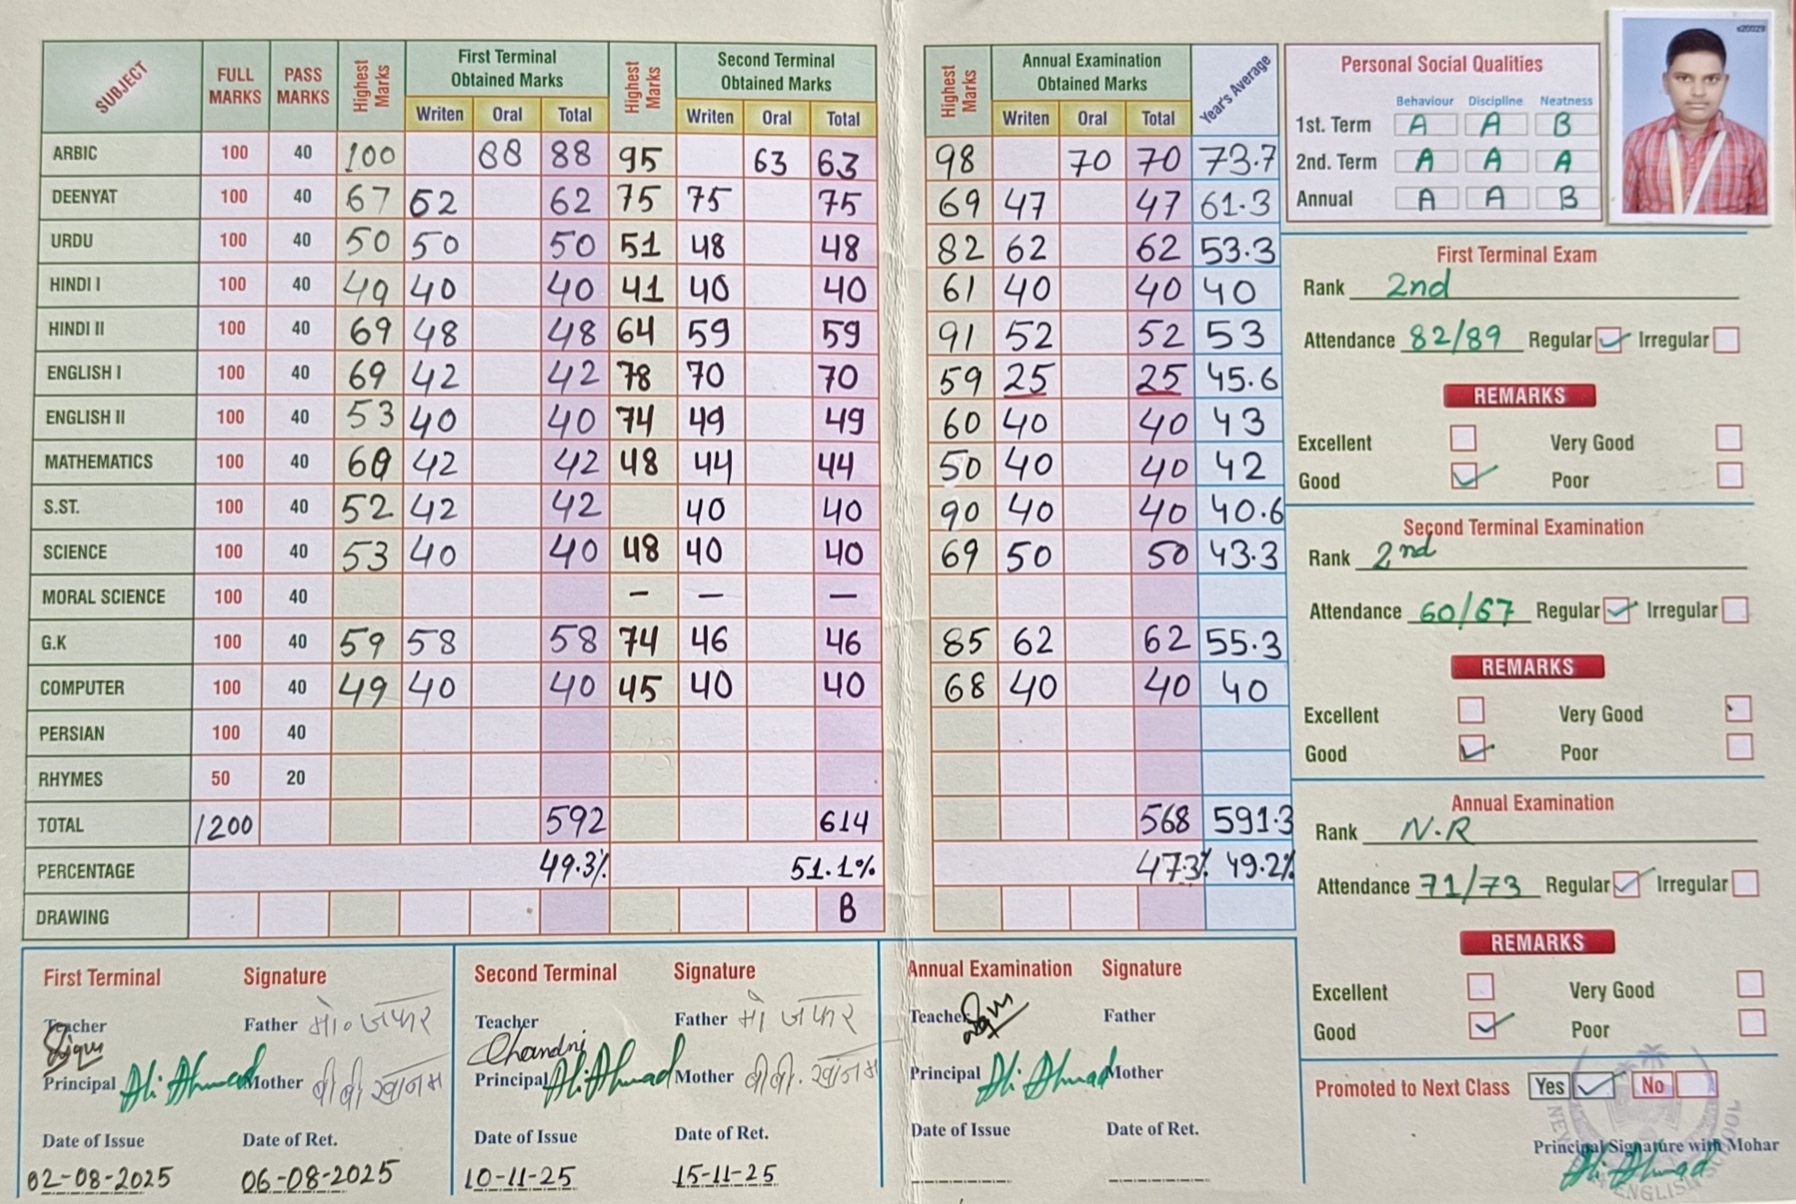 SUBJECT FULL MARKS PASS MARKS Highest Marks First Terminal Obtained Marks Writen Oral Total Highest Marks Second Terminal Obtained Marks Writen Oral Total Highest Marks Annual Examination Obtained Marks Writen Oral Total Year's Average
ARBIC 100 40 100 88 88 95 63 63 98 70 70 73.7
DEENYAT 100 40 67 62 62 75 75 75 69 47 47 61.3
URDU 100 40 50 50 50 51 48 48 82 62 62 53.3
HINDI I 100 40 49 40 40 41 40 40 61 40 40 40
HINDI II 100 40 69 48 48 64 59 59 91 52 52 53
ENGLISH I 100 40 69 42 42 78 70 70 59 25 25 45.6
ENGLISH II 100 40 53 40 40 74 49 49 60 40 40 43
MATHEMATICS 100 40 60 42 42 48 44 44 50 40 40 42
S.ST. 100 40 52 42 42 40 40 90 40 40 40.6
SCIENCE 100 40 53 40 40 48 40 40 69 50 50 43.3
MORAL SCIENCE 100 40 – – –
G.K 100 40 59 58 58 74 46 46 85 62 62 55.3
COMPUTER 100 40 49 40 40 45 40 40 68 40 40 40
PERSIAN 100 40
RHYMES 50 20
TOTAL 1200 592 614 568 591.3
PERCENTAGE 49.3% 51.1% 47.3% 49.2%
DRAWING B
Personal Social Qualities
Behaviour Discipline Neatness
1st. Term A A B
2nd. Term A A A
Annual A A B
First Terminal Exam
Rank 2nd
Attendance 82/89 Regular Irregular
REMARKS
Excellent Very Good
Good Poor
Second Terminal Examination
Rank 2nd
Attendance 60/67 Regular Irregular
REMARKS
Excellent Very Good
Good Poor
Annual Examination
Rank N.R
Attendance 71/73 Regular Irregular
REMARKS
Excellent Very Good
Good Poor
Promoted to Next Class Yes No
Principal Signature with Mohar
Ali Ahmad
First Terminal Signature
Teacher Father मो० जफर
Principal Ali Ahmad Mother बीबी खानम
Date of Issue Date of Ret.
02-08-2025 06-08-2025
Second Terminal Signature
Teacher Chandni Father मो जफर
Principal Ali Ahmad Mother बीबी. खानम
Date of Issue Date of Ret.
10-11-25 15-11-25
Annual Examination Signature
Teacher Father
Principal Ali Ahmad Mother
Date of Issue Date of Ret.